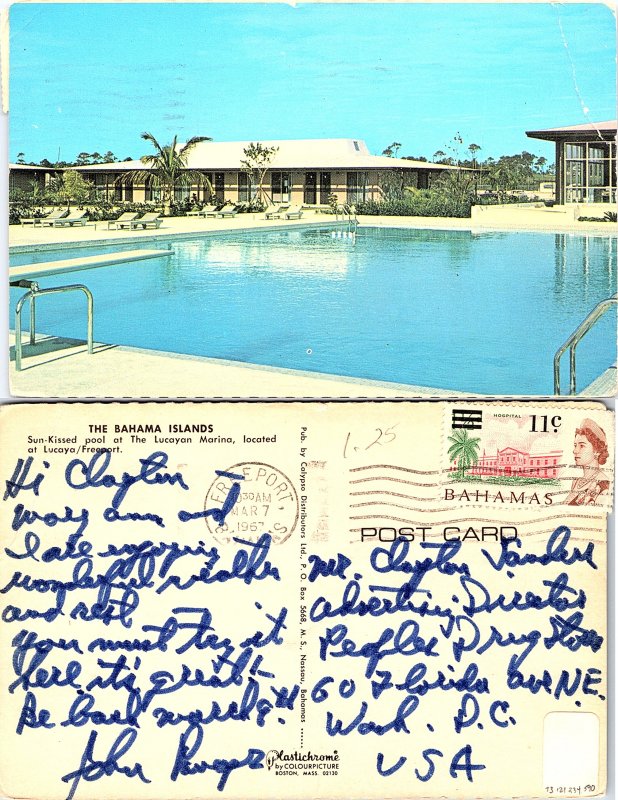 THE BAHAMA ISLANDS
Sun-Kissed pool at The Lucayan Marina, located
at Lucaya/Freeport.
Hi Clayton –
Mary Ann and
I are enjoying
wonderful weather
and rest –
You must try it
here it's great!
Be back March
John
Pub. by Calypso Distributors Ltd., P. O. Box 5668, M. S., Nassau, Bahamas
Plastichrome
by COLOURPICTURE
BOSTON, MASS. 02130
1.25
FREEPORT
10 30 AM
MAR 7
1967
HOSPITAL
11c
BAHAMAS
POST CARD
Mr. Clayton Sanders
Advertising Director
Peoples Drug Stores
60 Florida Ave N.E.
Wash. D.C.
USA
73 121 234 590